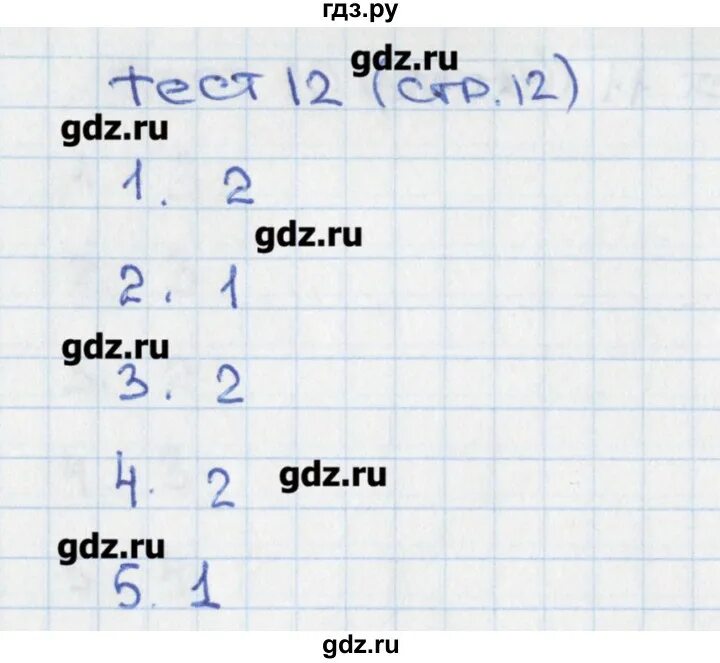 гдз.ру
gdz.ru
тест 12 (стр. 12)
gdz.ru
1. 2
gdz.ru
2. 1
gdz.ru
3. 2
4. 2 gdz.ru
gdz.ru
5. 1
gdz.ru